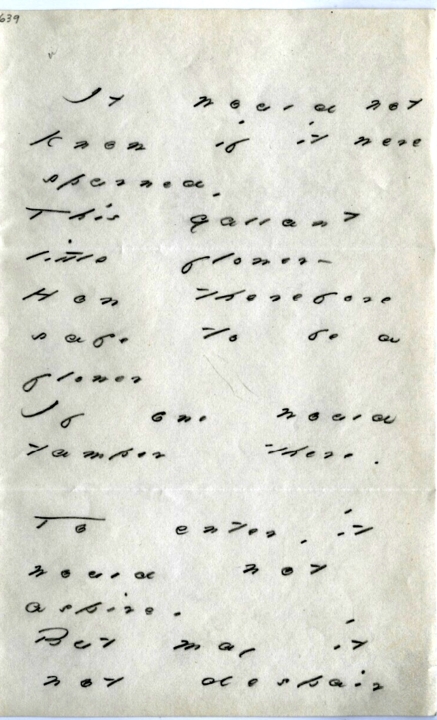 639
It would not
know if it were
spurned,
This gallant
little flower—
How therefore
safe to be a
flower
If one would
tamper there.
To enter, it
would not
aspire.
But may it
not despair